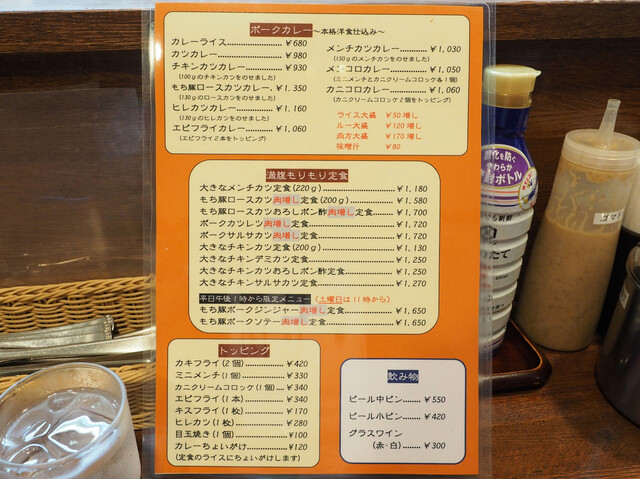 ポークカレー～本格洋食仕込み～
カレーライス……………………¥680
カツカレー………………………¥980
チキンカツカレー………………¥930
(100gのチキンカツをのせました)
もち豚ロースカツカレー.¥1,350
(130gのロースカツをのせました)
ヒレカツカレー…………¥1,160
(130gのヒレカツをのせました)
エビフライカレー………¥1,060
(エビフライ2本をトッピング)
メンチカツカレー…………¥1,030
(150gのメンチカツをのせました)
メンコロカレー……………¥1,050
(ミニメンチとカニクリームコロッケ各1個)
カニコロカレー……………¥1,060
(カニクリームコロッケ2個をトッピング)
ライス大盛 ¥50増し
ルー大盛 ¥120増し
両方大盛 ¥170増し
味噌汁 ¥80
満腹もりもり定食
大きなメンチカツ定食(220g)……………………¥1,180
もち豚ロースカツ肉増し定食(200g)……………¥1,580
もち豚ロースカツおろしポン酢肉増し定食………¥1,700
ポークカツレツ肉増し定食…………………………¥1,720
ポークサルサカツ肉増し定食………………………¥1,720
大きなチキンカツ定食(200g)……………………¥1,130
大きなチキンデミカツ定食…………………………¥1,250
大きなチキンカツおろしポン酢定食………………¥1,250
大きなチキンサルサカツ定食………………………¥1,270
平日午後1時から限定メニュー (土曜日は11時から)
もち豚ポークジンジャー肉増し定食………………¥1,650
もち豚ポークソテー肉増し定食……………………¥1,650
トッピング
カキフライ(2個)………………¥420
ミニメンチ(1個)………………¥330
カニクリームコロッケ(1個)……¥340
エビフライ(1本)………………¥340
キスフライ(1枚)………………¥170
ヒレカツ(1枚)…………………¥280
目玉焼き(1個)…………………¥100
カレーちょいがけ………………¥120
(定食のライスにちょいがけします)
飲み物
ビール中ビン………¥550
ビール小ビン………¥420
グラスワイン
(赤・白)………¥300
化を防ぐ
ゴマド